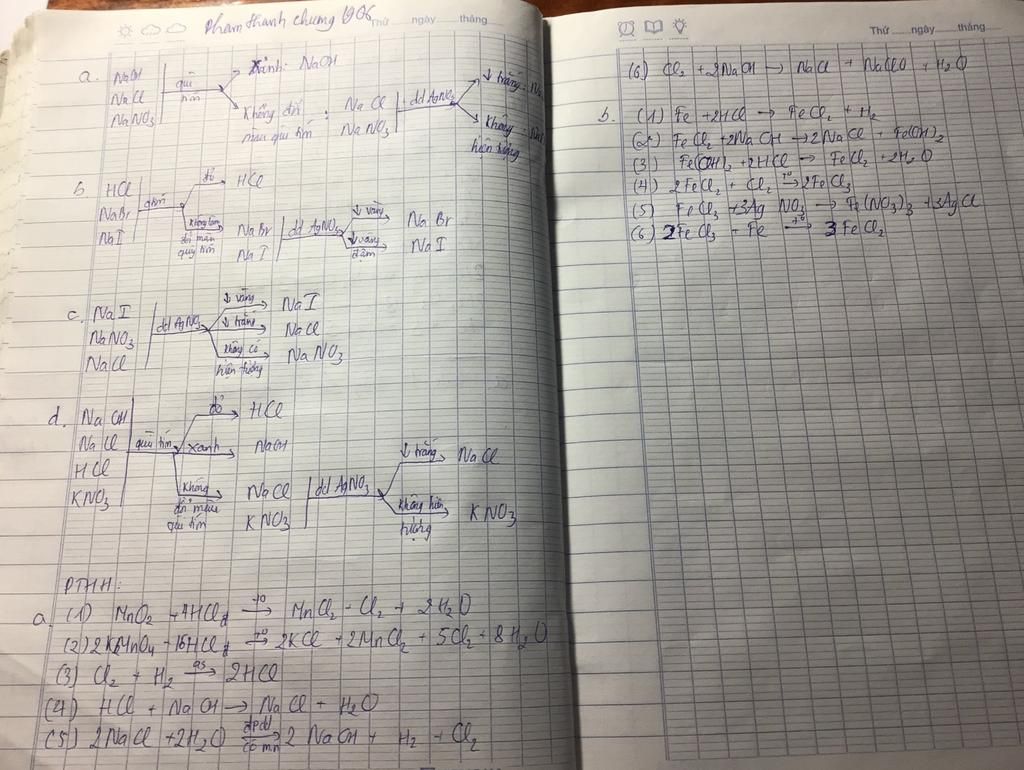 Phạm thanh chương 10
Thứ ..... ngày ..... tháng .....
a. NaOH
NaCl
NaNO3
quì tím
xanh: NaOH
không đổi màu quì tím :
NaCl
NaNO3
dd AgNO3
↓ trắng:
không hiện tượng:
b. HCl
NaBr
NaI
qtím
đỏ
HCl
không làm đổi màu quỳ tím
NaBr
NaI
dd AgNO3
↓ vàng
NaBr
↓ vàng đậm
NaI
c. NaI
NaNO3
NaCl
dd AgNO3
↓ vàng
NaI
↓ trắng
NaCl
không có hiện tượng
NaNO3
d. NaOH
NaCl
HCl
KNO3
quì tím
đỏ
HCl
xanh
NaOH
không đổi màu quì tím
NaCl
KNO3
dd AgNO3
↓ trắng
NaCl
không hiện tượng
KNO3
PTHH:
a. (1) MnO2 + 4HClđ →t0 MnCl2 + Cl2 + 2H2O
(2) 2KMnO4 + 16HClđ →t0 2KCl + 2MnCl2 + 5Cl2 + 8H2O
(3) Cl2 + H2 →as 2HCl
(4) HCl + NaOH → NaCl + H2O
(5) 2NaCl + 2H2O →đpdd có mn 2NaOH + H2 + Cl2
Thứ ..... ngày ..... tháng .....
(6) Cl2 + 2NaOH → NaCl + NaClO + H2O
b. (1) Fe + 2HCl → FeCl2 + H2
(2) FeCl2 + 2NaOH → 2NaCl + Fe(OH)2
(3) Fe(OH)2 + 2HCl → FeCl2 + 2H2O
(4) 2FeCl2 + Cl2 →t0 2FeCl3
(5) FeCl3 + 3AgNO3 → Fe(NO3)3 + 3AgCl
(6) 2FeCl3 + Fe →t0 3FeCl2